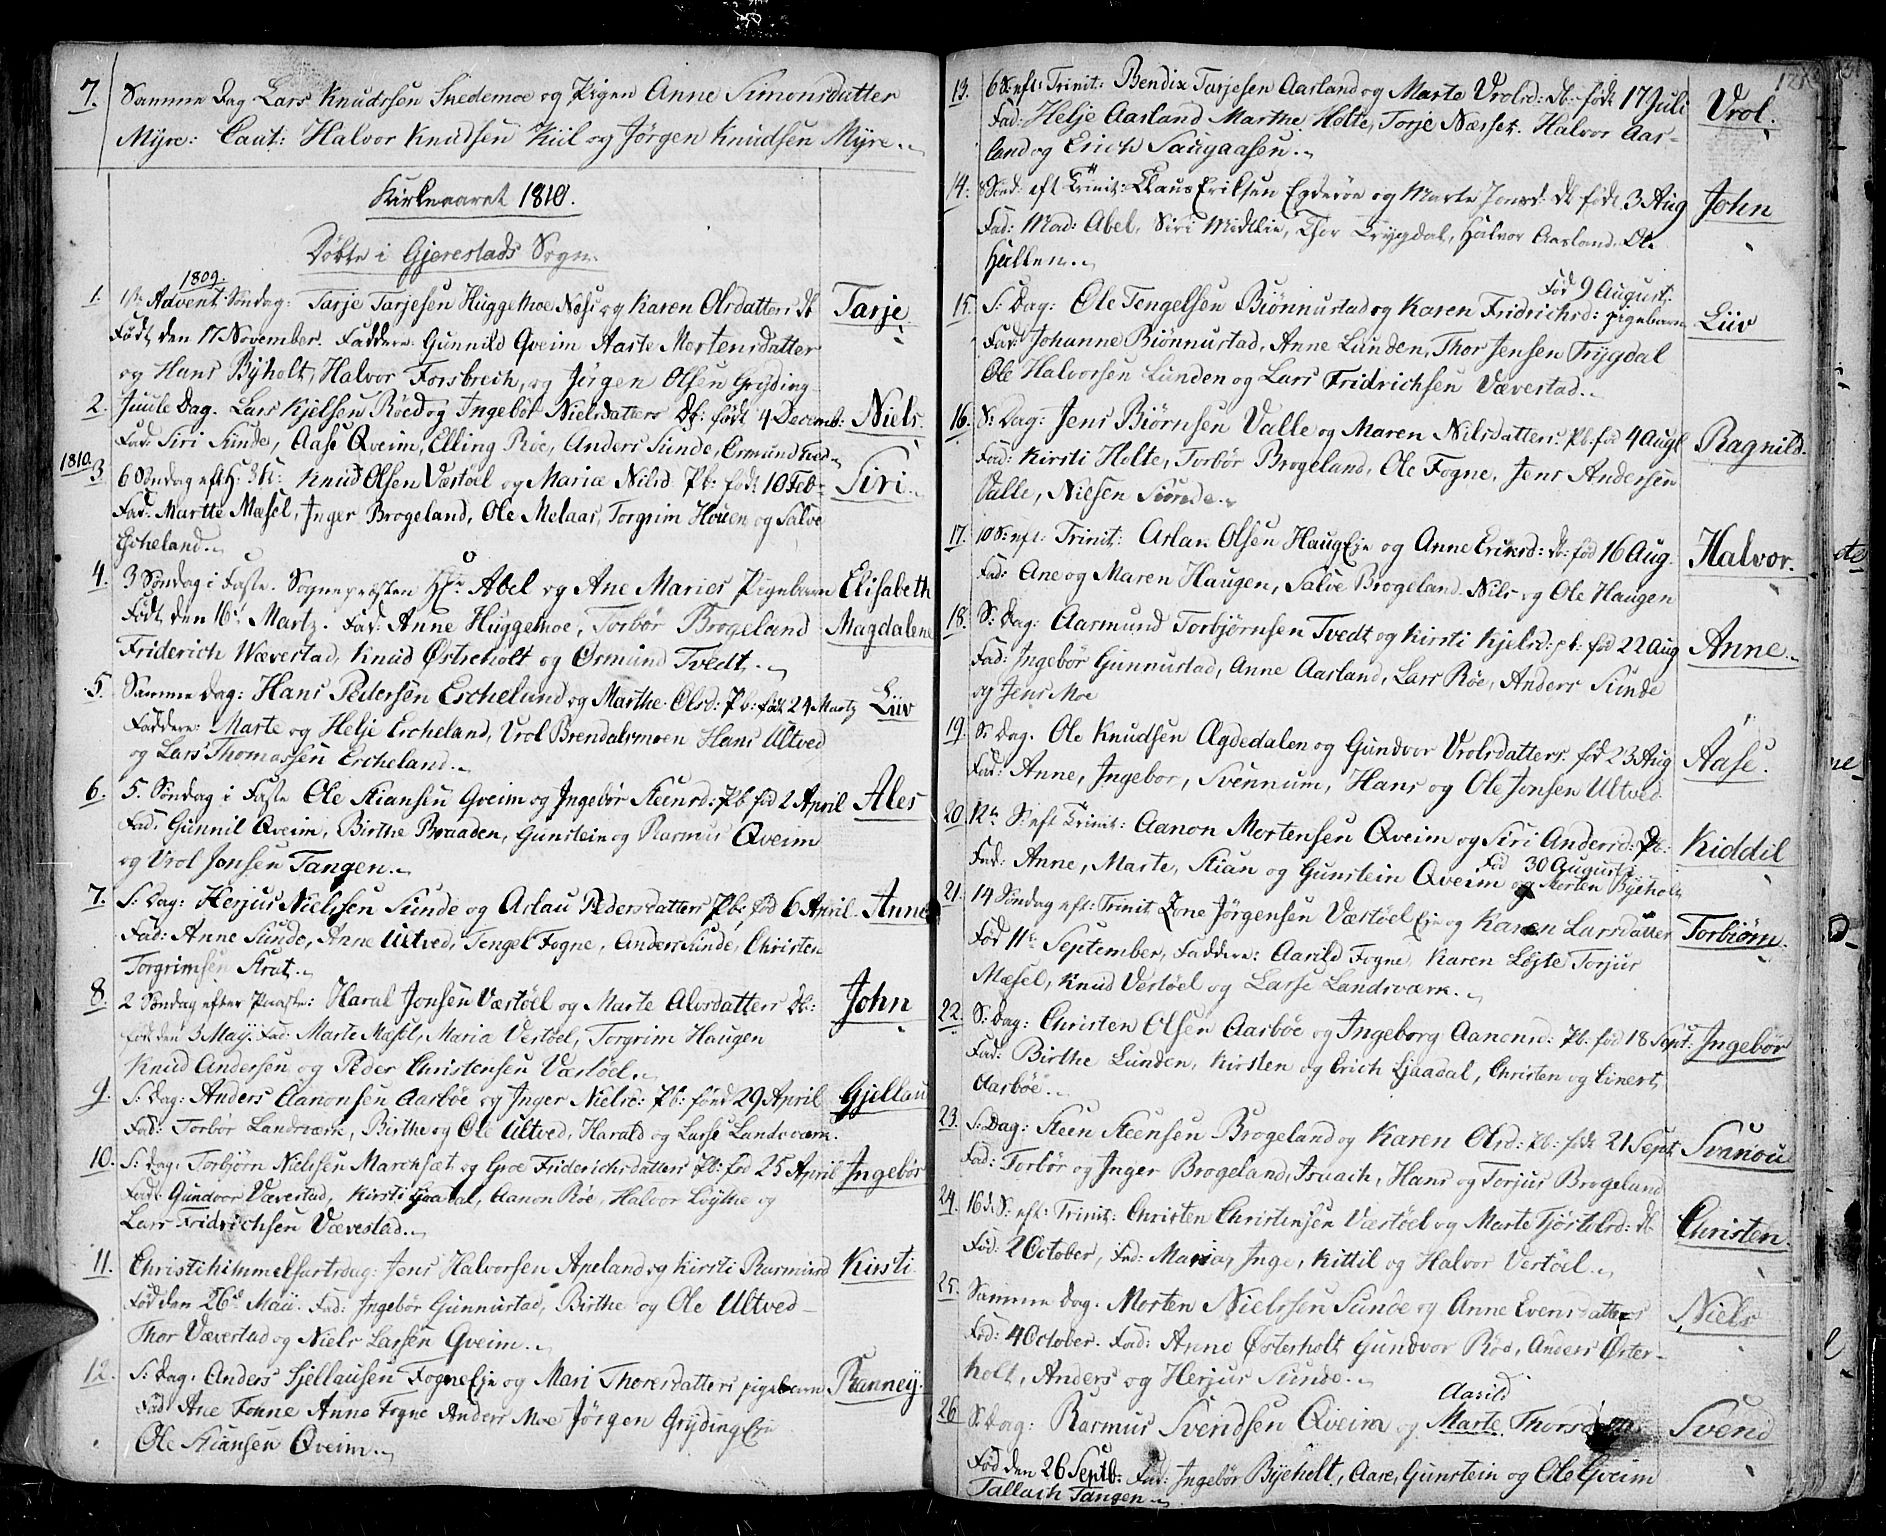 7. Samme Dag Lars Knudsen Snedemoe og Pigen Anne Simonsdatter
Myre: Caut: Halvor Knudsen Kiil og Jørgen Knudsen Myre.
Kirkeaaret 1810.
Døbte i Gjerestads Sogn.
1809.
1. 1ste Advent Søndag: Tarje Tarjesen Huggemoe Næss og Karen Olsdatters Db Tarje
Født den 17 November. Faddere Gunnild Qveim Aaste Mortensdatter
og Hans Byholt, Halvor Forsbrech, og Jørgen Olsen Gryding
2. Juule Dag. Lars Kjelsen Røed og Ingebør Nielsdatters Db: født 4 Decemb: Niels.
Fad: Siri Sunde, Aase Qveim, Elling Röe, Anders Sunde, Ormund Tvedt
1810. 3 6 Søndag eft H: 3 K: Knud Olsen Værstøel og Mariæ Nilsd: Pb: født 10 Feb: Siri.
Fad: Martte Mæsel, Inger Brogeland, Ole Melaas, Torgrim Houen og Salve
Escheland.
4. 3 Søndag i Faste. Sognepræsten Hr Abel og Ane Maries Pigebarn Elisabeth
Født den 16 Martz. Fad: Anne Huggemoe, Torbør Brogeland Magdalene
Friderich Wævestad, Knud Østreholt og Ormund Tvedt.
5. Samme Dag: Hans Pedersen Escheland og Marthe Olsd: Pb: født 24 Martz Liiv
Faddere: Marte og Helje Escheland, Vrol Brendalsmoen Hans Ultved
og Lars Thomassen Escheland.
6. 5. Søndag i Faste Ole Stiansen Qveim og Ingebør Steensd: Pb: fød 2 April Ales
Fad: Gunnil Qveim, Birthe Braaden, Gunstein og Rasmus Qveim
og Vrol Jonsen Tangen.
7. S: Dag: Herjus Nielsen Sunde og Aslau Pedersdatters Pb: fød 6 April. Anne
Fad: Anne Sunde, Anne Ultved, Tengel Fogne, Anders Sunde, Christen
Torgrimsen Strat.
8. 2 Søndag efter Paaske: Haral Jonsen Værstøel og Marte Alvsdatters Db: John
fød den 3 May. Fad: Marte Mæsel, Maria Verstøel, Torgrim Haugen
Knud Andersen og Peder Christensen Værstøel.
9. S: Dag: Anders Aanonsen Aarbøe og Inger Nielsd: Pb: fød 29 April Gjellau
Fad: Torbør Landsværk, Birthe og Ole Ultved, Harald og Lasse Landsværk.
10. S: Dag: Torbjørn Nielsen Marchsæt og Groe Friderichsdatters Pb: fød 25 April Ingebør
Fad: Gundvor Vævestad, Kirsti Ljaadal, Aanon Röe, Halvor Löythe og
Lars Fridrichsen Vævestad.
11. Christihimmelfartsdag: Jens Halvorsen Apeland og Kirsti Rasmusd Kirsti
Fød den 26 Maii. Fad: Ingebør Gunnustad, Birthe og Ole Ultved
Thor Vævestad og Niels Larsen Qveim.
12. S: Dag: Anders Gjellausen Fogne Eje og Mari Thoresdatters pigebarn Ranney.
Fad: Ane Fonne Anne Fogne Anders Moe Jørgen Gryding Eje
Ole Stiansen Qveim.
13. 6 S: eft: Trinit: Bendix Tarjesen Aasland og Marte Vrolsd: Db: født 17 Juli Vrol.
Fad: Helje Aasland Marthe Holte, Torje Næsset. Halvor Aas-
land og Erich Saugaasen.
14. 8 Sønd: eft Trinit: Claus Eriksen Egderøe og Marte Jonsd: Db født 3 Aug John
Fad: Mad: Abel, Siri Midtlie, Thor Trygdal, Halvor Aasland. Ole
Hullen.
Fød 9 August.
15. S: Dag: Ole Tengelsen Biønnustad og Karen Fridrichsd: pigebarn Liiv
Fad: Johanne Biönnustad, Anne Lunden, Thor Jensen Trygdal
Ole Halvorsen Lunden og Lars Fridrichsen Vævestad.
16. S: Dag: Jens Biørnsen Valle og Maren Nilsdatters: Pb: fød 4 Aug Ragnild.
Fad: Kirsti Holte, Torbør Brogeland, Ole Fogne, Jens Andersen
Valle, Nielsen Sunde.
17. 10 S: eft: Trinit: Aslak Olsen Haug Eje og Anne Ericksd: Db: fød 16 Aug. Halvor.
Fad: Ane og Maren Haugen, Salve Brogeland. Nils og Ole Haugen
18. S: Dag: Aarmund Torbjørnsen Tvedt og Kirsti Kjelsd: pb: fød 22 Aug Anne.
Fad: Ingebør Gunnustad, Anne Aasland, Lars Röe, Anders Sunde
og Jens Moe
19. S: Dag. Ole Knudsen Agdedalen og Gundvor Vrolsdatters fød 23 Aug Aase.
Fad: Anne, Ingebor, Svennum, Hans og Ole Jonsen Ultved
20. 12te S: eft Trinit: Aanon Mortensen Qveim og Siri Andersd: Kiddil
Fød 30 Augusti
Fad: Anne, Marte, Stian og Gunstein Qveim og Morten Byeholt
21. 14 Søndag eft: Trinit Zone Jørgensen Værstøel Eje og Karen Larsdatter Torbiørn.
Fød 11te September, Faddere: Aarild Fogne, Karen Löyte Torjus
Mæsel, Knud Verstøel og Lasse Landsværk.
22. S: Dag: Christen Olsen Aarbøe og Ingeborg Aanonsd: Pb: fød 18 Sept: Ingebør
Fad: Birthe Lunden, Kirsten og Erich Ljaadal, Christen og Einert
Aarbøe.
23. S: Dag: Steen Steensen Brogeland og Karen Olsd: Pb: født 21 Sept. Svanou
Fad: Torbør og Inger Brogeland, Isaach, Hans og Torjus Brogeland
24. 16 d S: eft: Trinit: Christen Christensen Værstøel og Marte Tjøstelsd: Db Christen.
Fød: 2 October, Fad: Maria, Inge, Kittil og Halvor Verstøel.
25. Samme Dag. Morten Nielsen Sunde og Anne Evensdatters Niels
Fød: 4 October. Fad: Anne Østerholt Gundvor Röe, Anders Øster-
holt, Anders og Herjus Sunde.
Aasild
26 S: Dag: Rasmus Svendsen Qveim og Marte Thorsdatter Svend
Fød den 26 Septb: Fad: Ingebør Byeholt, Aase, Gunstein og Ole Qveim
Tallach Tangen.